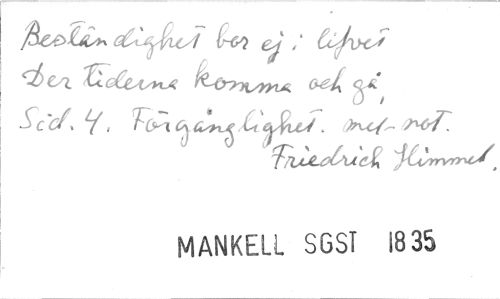 Beständighet bor ej i lifvet
Der tiderna komma och gå,
Sid. 4. Förgänglighet. mel-not.
Friedrich Himmel.
MANKELL SGST 1835